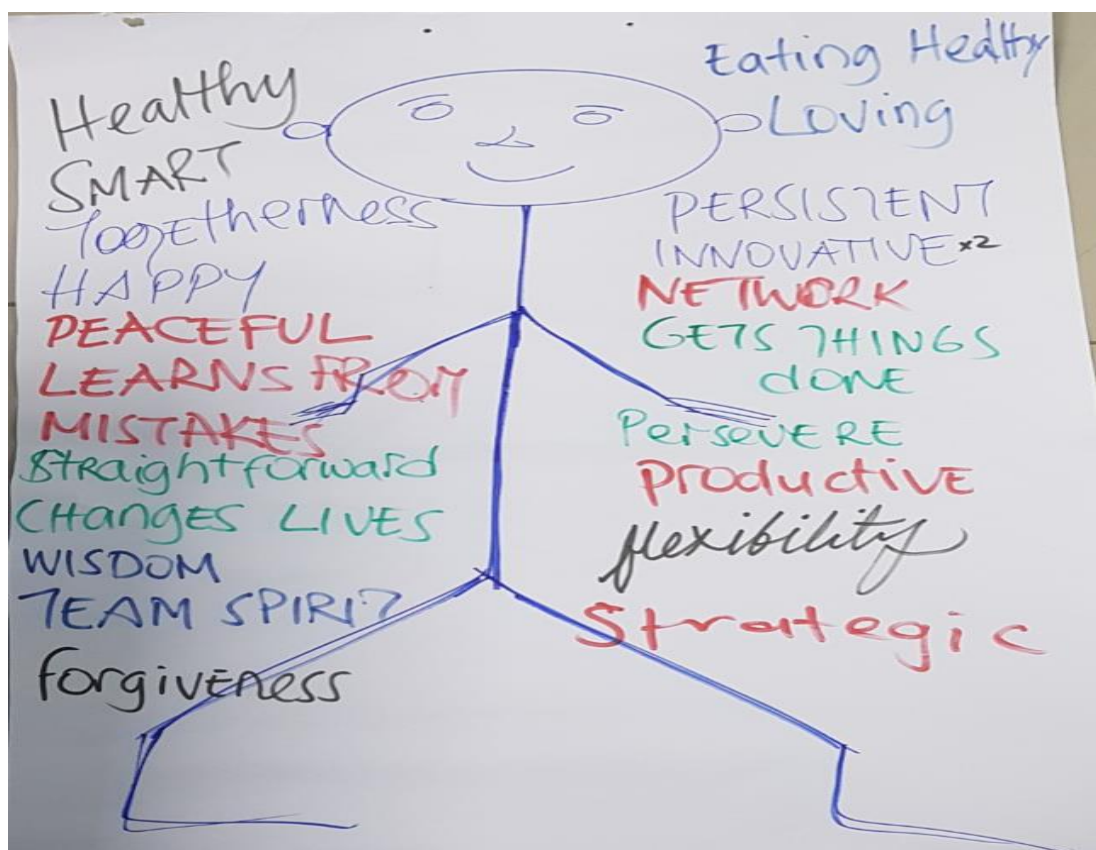 Healthy
SMART
TOGEtherness
HAPPY
PEACEFUL
LEARNS FROM
MISTAKES
Straightforward
CHANGES LIVES
WISDOM
TEAM SPIRIT
forgiveness
Eating Healthy
Loving
PERSISTENT
INNOVATIVE x2
NETWORK
GETS THINGS
dONE
PersevERE
ProductivE
flexibility
Strategic